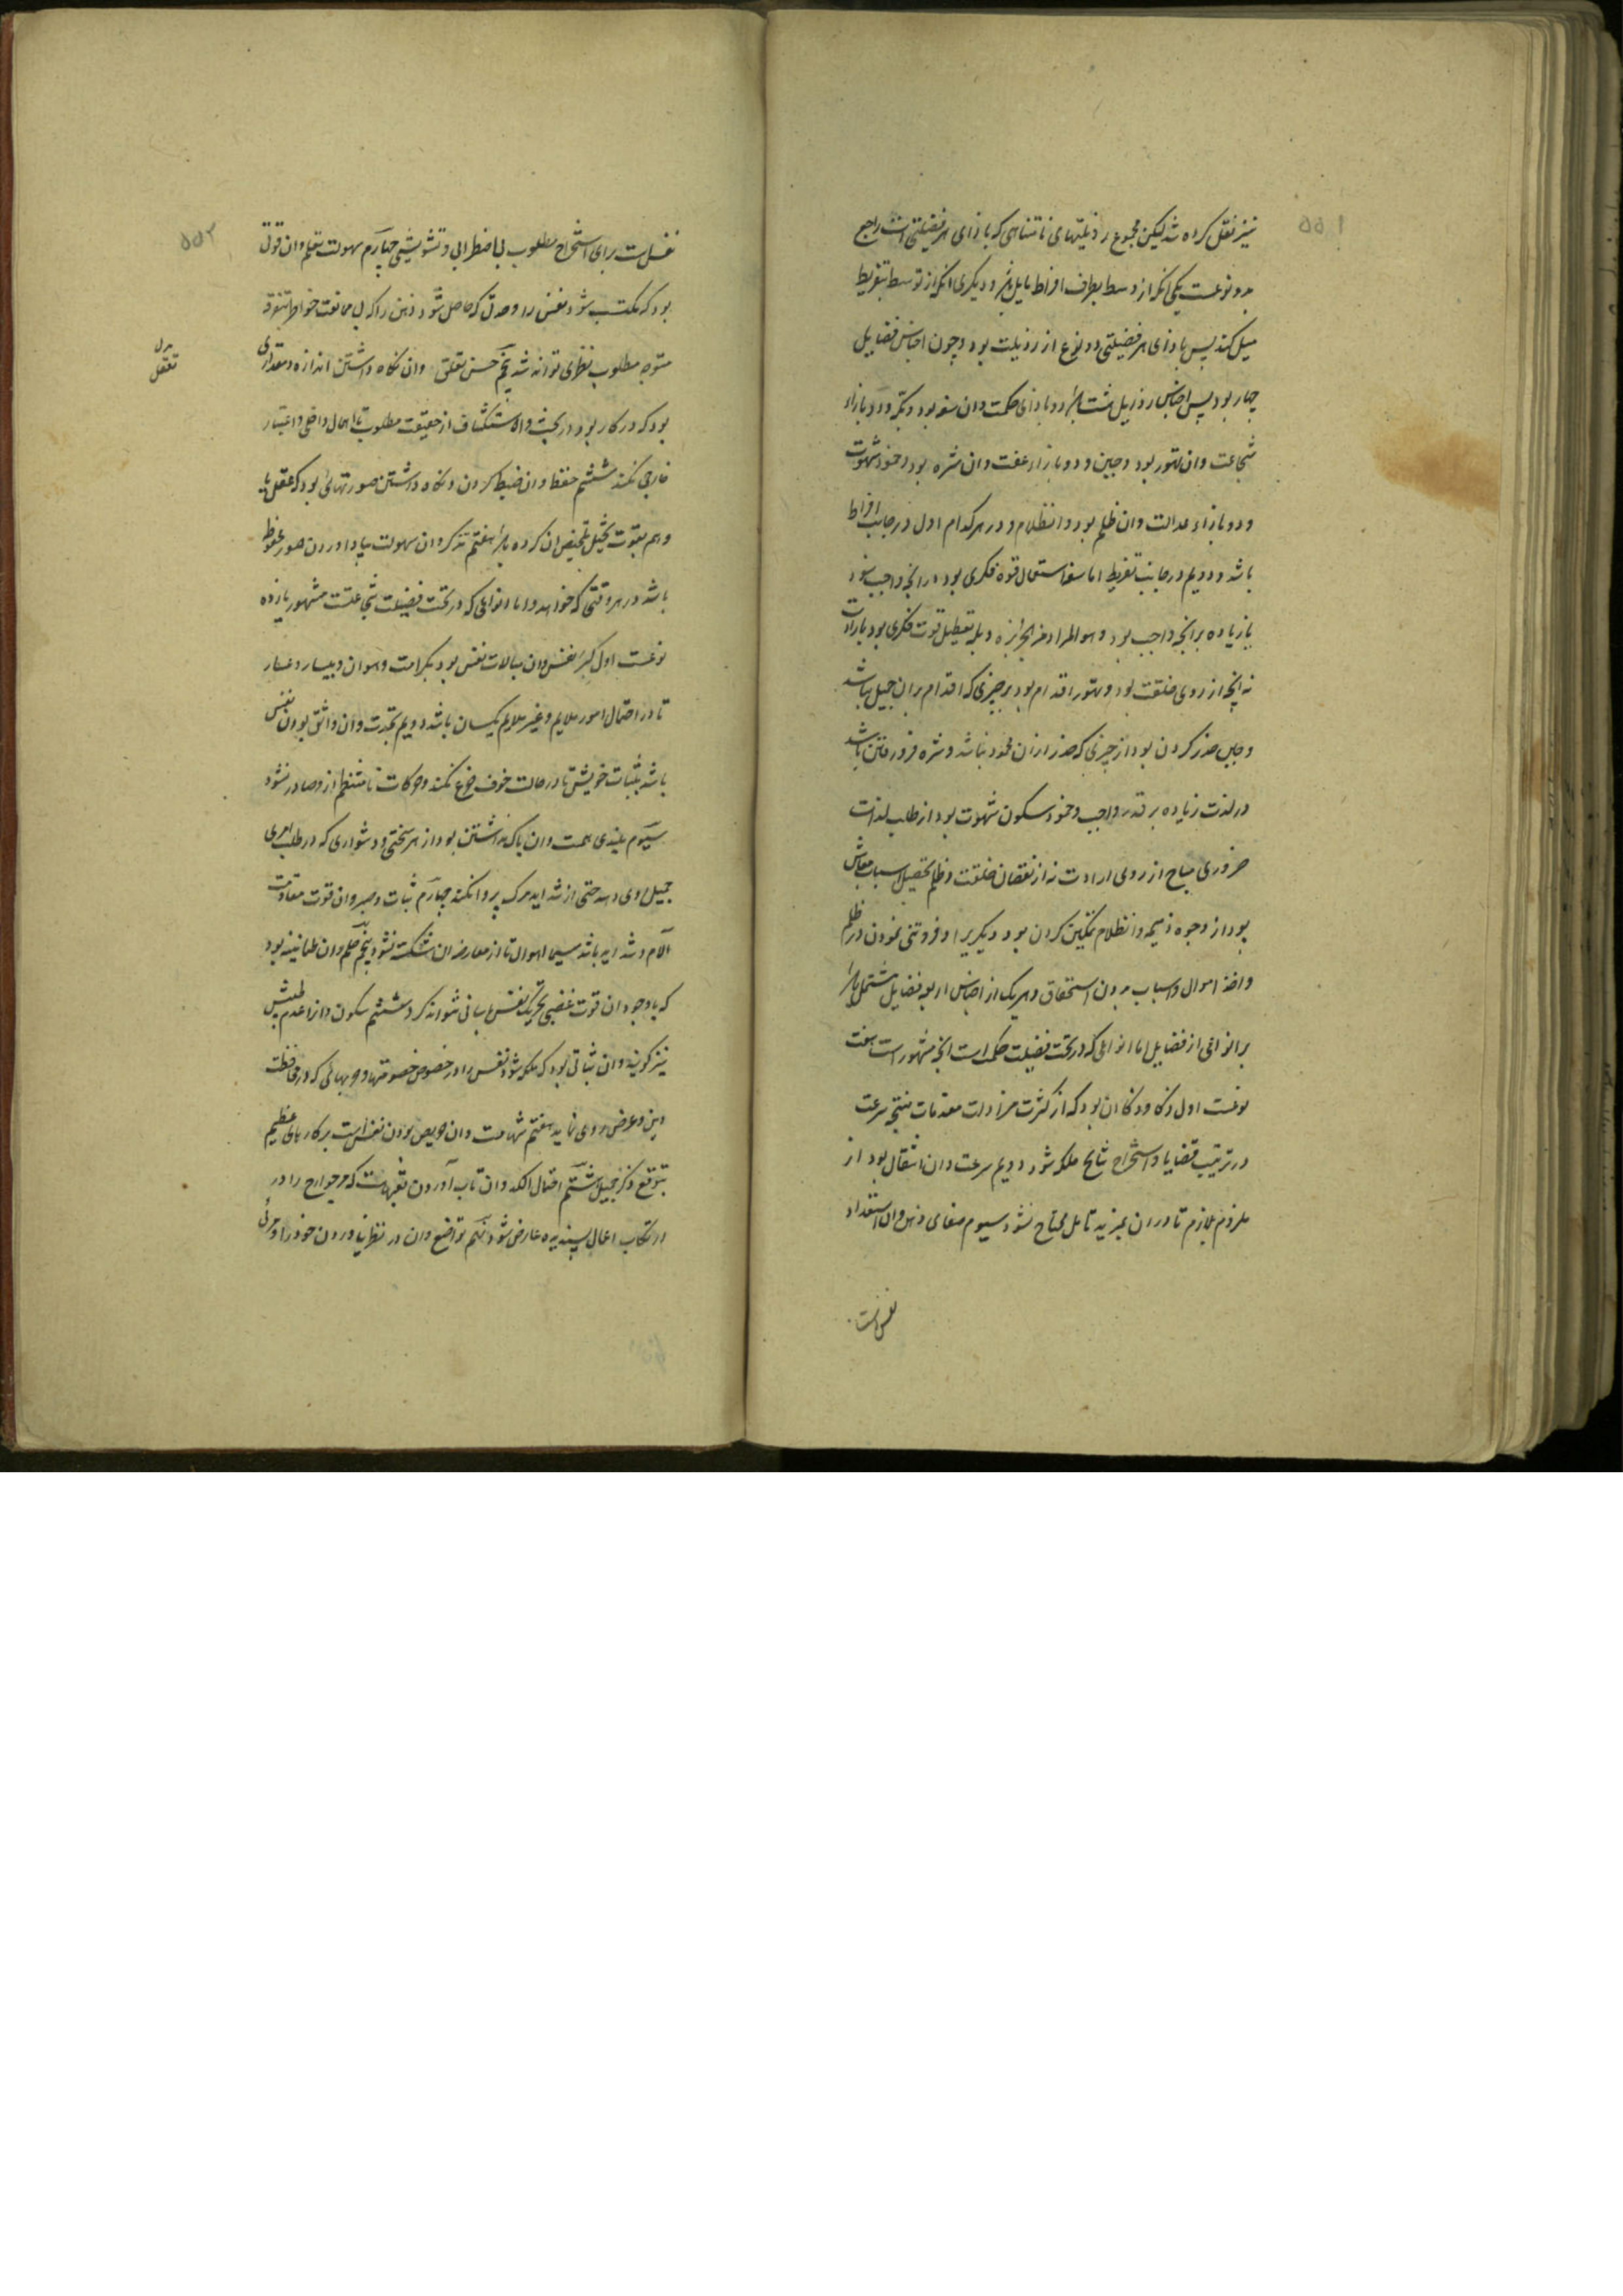 ۵۵۱
نیز نقل کرده شد لیکن مجموع رذیلتهای نامتناهی که بازای هر فضیلتی است راجع
بدو نوعست یکی انکه از وسط بطرف افراط مایل باشد و دیگری انکه از توسط بتفریط
میل کند پس بازای هر فضیلتی دو نوع از رذیلت بود و چون اجناس فضایل
چهار بود پس اجناس رذایل هشت باشد دو بازای حکمت و ان سفه بود و بله و دو بازاء
شجاعت و ان تهور بود و جبن و دو بازاء عفت و ان شره بود و خمود شهوت
و دو بازاء عدالت و ان ظلم بود و انظلام و در هر کدام اول در جانب افراط
باشد و دویم در جانب تفریط اما سفه استعمال قوه فکری بود در انچه واجب نبود
یا زیاده بر انچه واجب بود و هو المراد من الجربزه و بله تعطیل قوت فکری بود بارادت
نه انچه از روی خلقت بود و تهور اقدام بود بر چیزی که اقدام بران جمیل نباشد
و جبن حذر کردن بود از چیزی که حذر ازان محمود نباشد و شره فرو رفتن باشد
در لذت زیاده بر قدر واجب و خمود سکون شهوت بود از طلب لذات
ضروری مباح از روی ارادت نه از نقصان خلقت و ظلم تحصیل اسباب معاش
بود از وجوه ذمیمه و انظلام تمکین کردن بود دیگریرا و فروتنی نمودن در ظلم
و اخذ اموال و اسباب بدون استحقاق و هر یک از اجناس اربعه فضایل مشتمل باشد
بر انواعی از فضایل اما انواعی که در تحت فضیلت حکمت است انچه مشهور است هفت
نوعست اول ذکا و ذکا ان بود که از کثرت مزاولت مقدمات منتجه سرعت
در ترتیب قضایا و استخراج نتایج ملکه شود دویم سرعت و ان انتقال بود از
ملزوم بلازم تا دران بمزید تامل محتاج نشود سیوم صفای ذهن و ان استعداد
نفس است
۵۵۲
نفس است برای استخراج مطلوب بی اضطرابی و تشویشی چهارم سهولت تعلم و ان قوتی
بود که مکتسب شود نفس را و حدتی که حاصل شود ذهن را که بی ممانعت خواطر متفرقه
متوجه مطلوب نظری تواند شد پنجم حسن تعلق و ان نکاه داشتن اندازه و مقداری
بدل
تعقل
بود که در کار بود در بحث و استکشاف از حقیقت مطلوب تا اهمال داخلی و اعتبار
خارجی نکند ششم حفظ و ان ضبط کردن و نکاه داشتن صورتهائی بود که عقل یا
وهم بقوت تخیل تلخیص ان کرده باشد هفتم تذکر و ان سهولت بیاد اوردن صور محفوظ
باشد در هر وقتی که خواهد و اما انواعی که در تحت فضیلت شجاعتست مشهور یازده
نوعست اول کبر نفس و ان مبالات نفس بود بکرامت و هوان و بیسار و عسار
تا در احتمال امور ملایم و غیر ملایم یکسان باشد دویم نجدت و ان واثق بودن نفس
باشد بثبات خویش تا در حالت خوف جزع نکند و حرکات نامنتظم ازو صادر نشود
سیوم بلندی همت و ان باک نداشتن بود از هر سختی و دشواری که در طلب امری
جمیل روی دهد حتی از شداید مرک پروا نکند چهارم ثبات و صبر و ان قوت مقاومت
آلام و شداید باشد سیما اهوال تا از معارضه ان شکسته نشود پنجم حلم و ان طمانینه بود
که باوجود ان قوت غضبی تحریک نفس باسانی نتواند کرد ششم سکون و انرا عدم طیش
نیز کویند و ان ثباتی بود که ملکه شود نفس را در خصوص خصومتها و حربهائی که در محافظت
دین و عرض روی نماید هفتم شهامت و ان حریص بودن نفس است بر کارهای عظیم
بتوقع ذکر جمیل هشتم احتمال الکد و ان تاب آوردن تعبهاست که مر جوارح را در
ارتکاب اعمال پسندیده عارض شود نهم تواضع و ان در نظر نیاوردن خود را و مزیتی